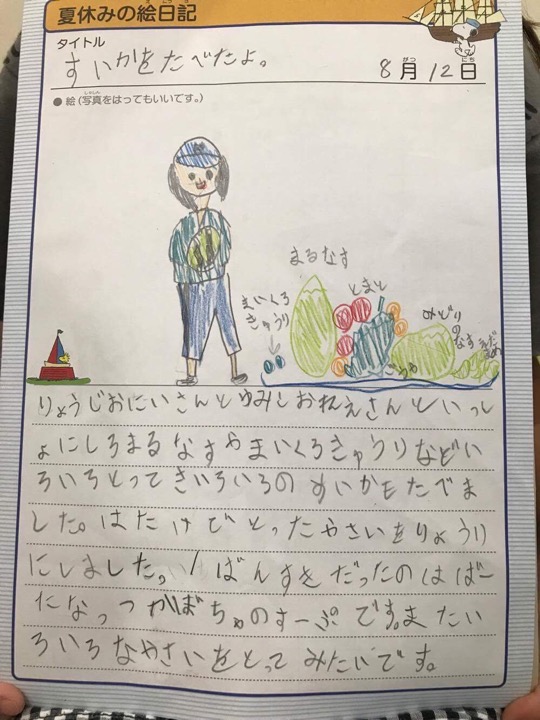 夏休みの絵日記
タイトル
すいかをたべたよ。
8月12日
●絵(写真をはってもいいです。)
まるなす
とまと
まいくろ
きゅうり
みどり
のなす
えだ
まめ
りょうじおにいさんとゆみこおねえさんといっし
ょにしろまるなすやまいくろきゅうりなどい
ろいろとってきいろいろのすいかもたべま
した。はたけでとったやさいをりょうり
にしました。1ばんすきだったのはばー
になっつかぼちゃのすーぷです。また い
ろいろなやさいをとってみたいです。